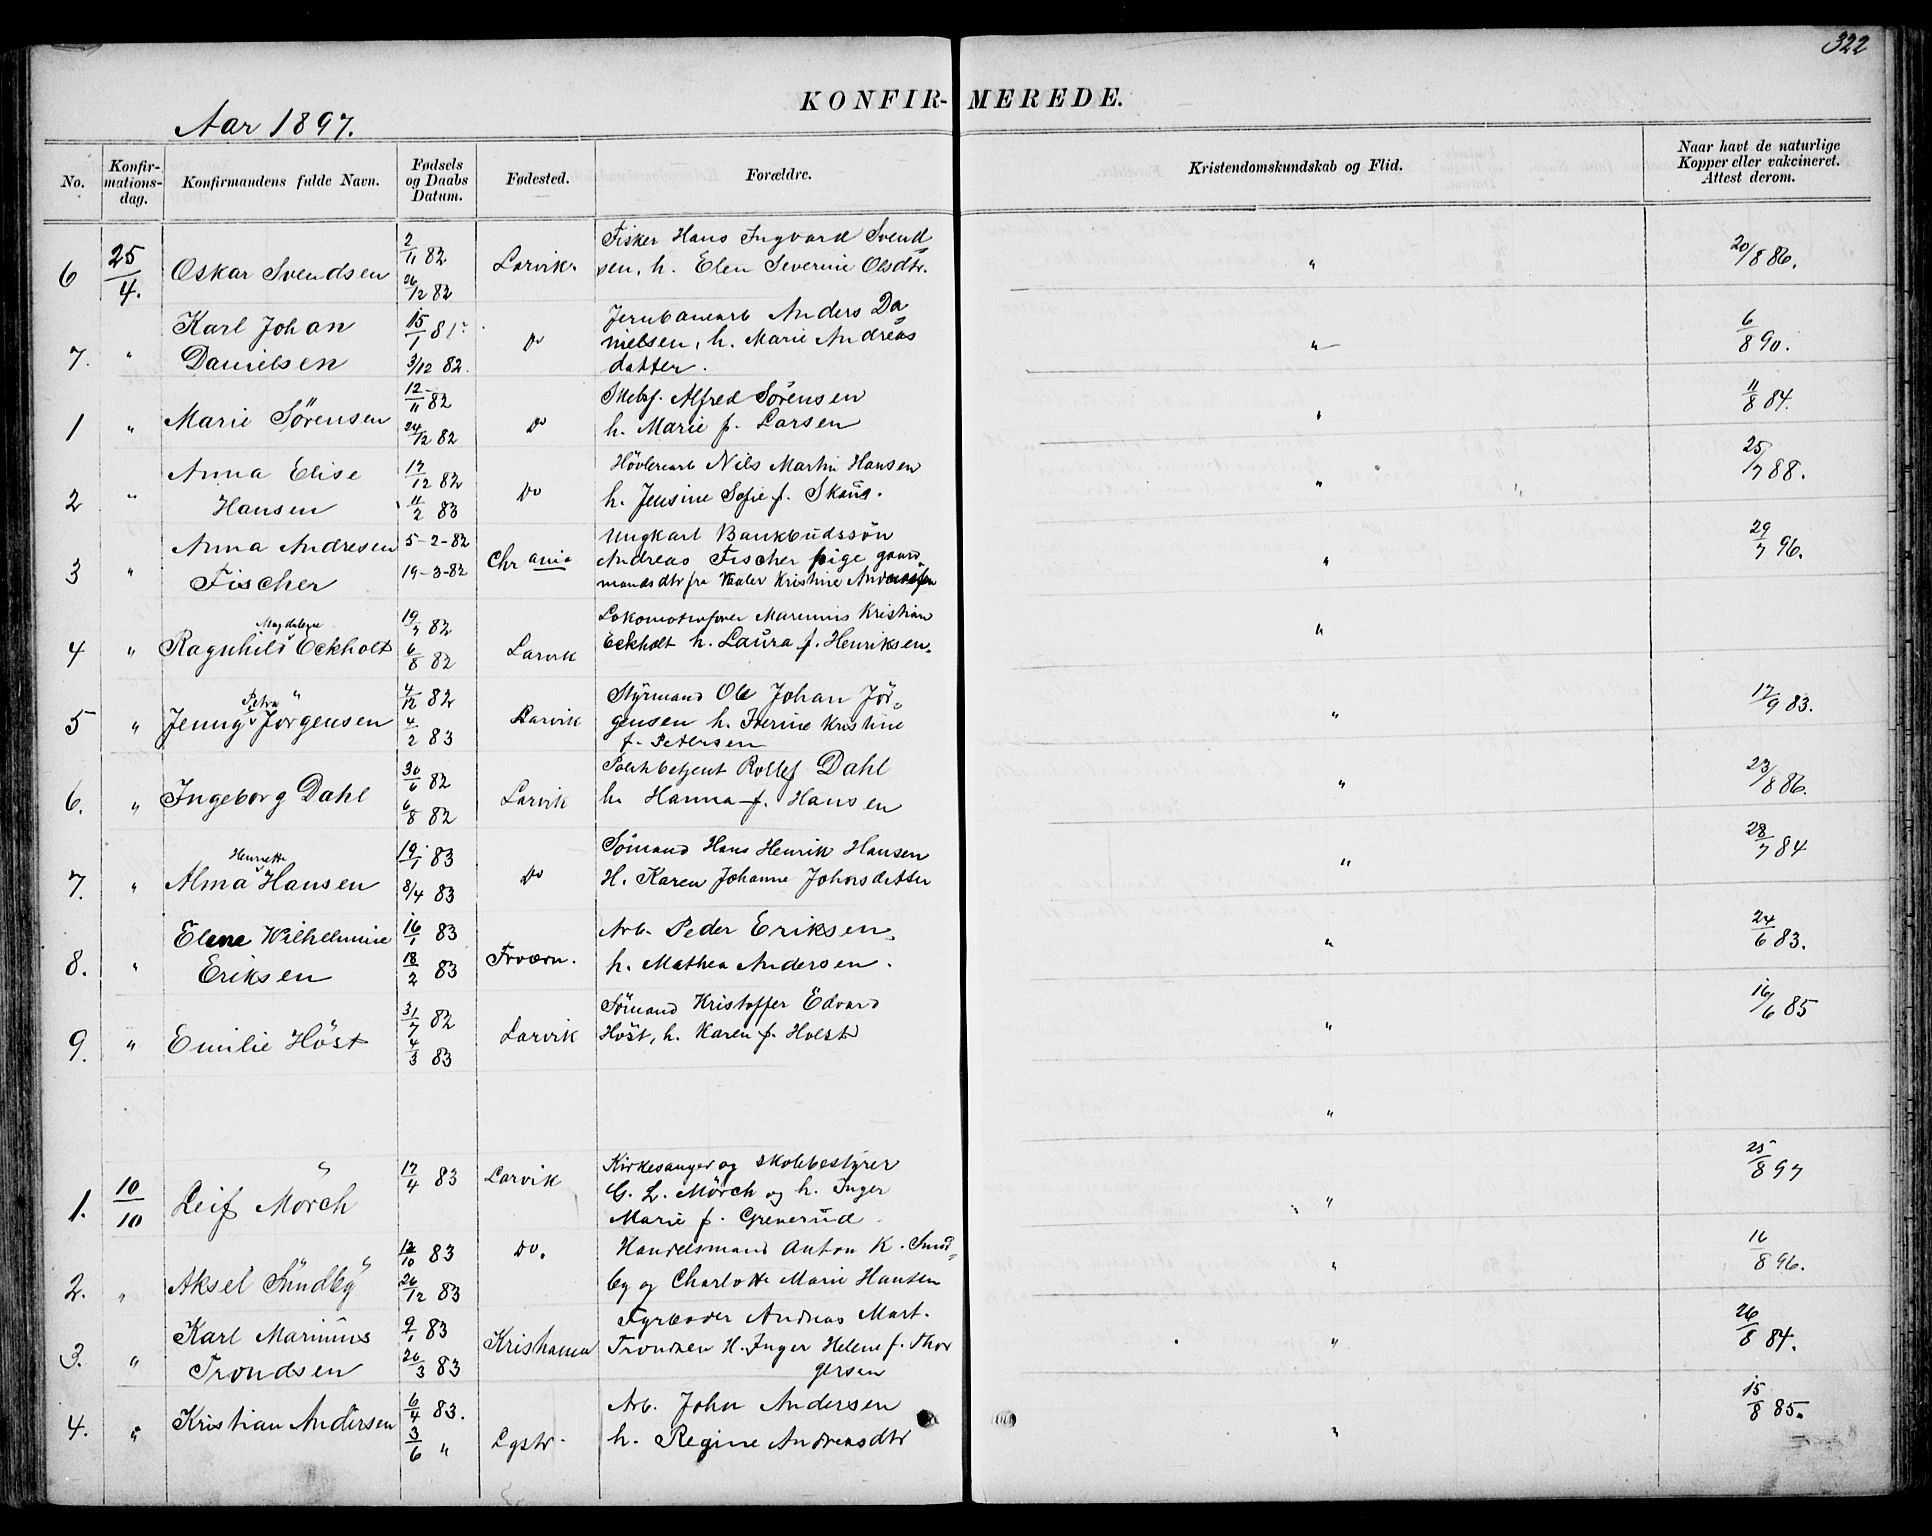 322
KONFIR- MEREDE.
Aar 1897.
No. Konfir-mations-dag. Konfirmandens fulde Navn. Fødsels og Daabs Datum. Fødested. Forældre. Kristendomskundskab og Flid. Naar havt de naturlige Kopper eller vakcineret. Attest derom.
2/11 82 Fisker Hans Ingvard Svend
6 25/4. Oskar Svendsen Larvik. sen, h. Elen Severine Olsdtr. " 20/8 86.
26/12 82
Karl Johan 15/1 81. Jernbanearb Anders Da
7. " Do nielsen, h. Marie Andreas " 6/8 90.
Danielsen 3/12 82. datter.
12/11 82 Alfred Sörensen 11/8 84.
1 " Marie Sörensen 24/12 82 Do h. Marie f. Larsen "
Anna Elise 17/12 82 Hövlerearb Nils Martin Hansen 25/7 88.
2 " Hansen 11/2 83 Do h. Jensine Sofie f. Skaus. "
Anna Andresen 5-2-82 Ungkarl Bankbudssön 29/7 96.
3 " Chrania Andreas Fischer pige gaard
Fischer 19-3-82 mandsdtr fra Vaaler Kristine Andersen "
Magdalene 19/7 82 Lokomotivfører Marinius Kristian
4 " Ragnhild Eckholt 6/8 82 Larvik Eckholt h. Laura f. Henriksen. "
Petra " 4/12 82 Styrmand Ole Johan Jör
5 " Jenny Jorgensen 4/2 83 Larvik gensen h. Iverine Kristine " 17/9 83.
f. Petersen
30/6 82 Politibetjent Rollef Dahl 23/8 86.
6. " Ingeborg Dahl 6/8 82 Larvik h. Hanna f. Hansen "
Henriette 19/1 83 Sömand Hans Henrik Hansen 28/7 84
7. " Alma Hansen 8/4 83 Do H. Karen Johanne Johansdatter "
Elene Wilhelmine 16/1 83 Arb. Peder Eriksen, 24/6 83.
8. " Eriksen 18/2 83 Frværn. h. Mathea Andersen. "
31/7 82 Sömand Kristoffer Edvard 16/6 85
9. " Emilie Höst 4/3 83 Larvik Höst, h. Karen f. Holst "
"
" 17/4 83 Larvik Kirkesanger og skolebestyrer 25/8 97
1. 10/10 Leif Mörch G. L. Mörch og h. Inger "
Marie f. Grenerud
12/10 83 Do. Handelsmand Anton K. Sund 16/8 96.
2. " Aksel Sundby 26/12 83 by og Charlotte Marie Hansen "
Karl Marinius 9/1 83 Fyrbøder Andreas Mart. 26/8 84.
3. " Kristiania Trondsen H. Inger Helene f. Thor "
Trondsen 26/3 83 gersen
6/4 83. Arb. John Andersen 15/8 85.
4. " Kristian Andersen 3/6 " Lgstr. h. Regine Andreasdtr "